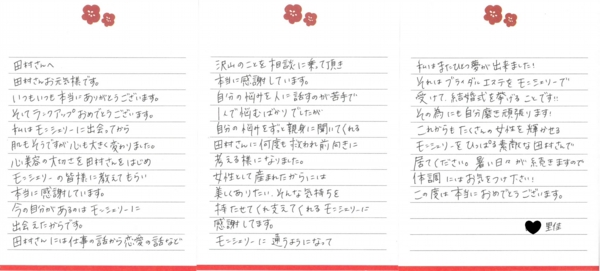 田村さんへ
田村さんお元気様です。
いつもいつも本当にありがとうございます。
そしてランクアップおめでとうございます。
私はモンシェリーに出会ってから
肌もそうですが心も大きく変わりました。
心美容の大切さを田村さんをはじめ
モンシェリーの皆様に教えてもらい
本当に感謝しています。
今の自分があるのはモンシェリーに
出会えたからです。
田村さんには仕事の話から恋愛の話など
沢山のことを相談に乗て頂き
本当に感謝しています。
自分の悩みを人に話すのが苦手で
1人で悩むばかりでしたが
自分の悩みをすごく親身に聞いてくれる
田村さんに何度も救われ前向きに
考える様になりました。
女性として産まれたからには
美しくありたい。そんな気持ちを
持たせてくれ支えてくれるモンシェリーに
感謝してます。
モンシェリーに通うようになって
私はまたひとつ夢が出来ました!
それはブライダルエステをモンシェリーで
受けて、結婚式を挙げることです!!
その為にも自分磨き頑張ります!
これからもたくさんの女性を輝かせる
モンシェリーをひっぱる素敵な田村さんで
居てください。暑い日々が続きますので
体調にはお気をつけ下さい!
この度は本当におめでとうございます。
里佳